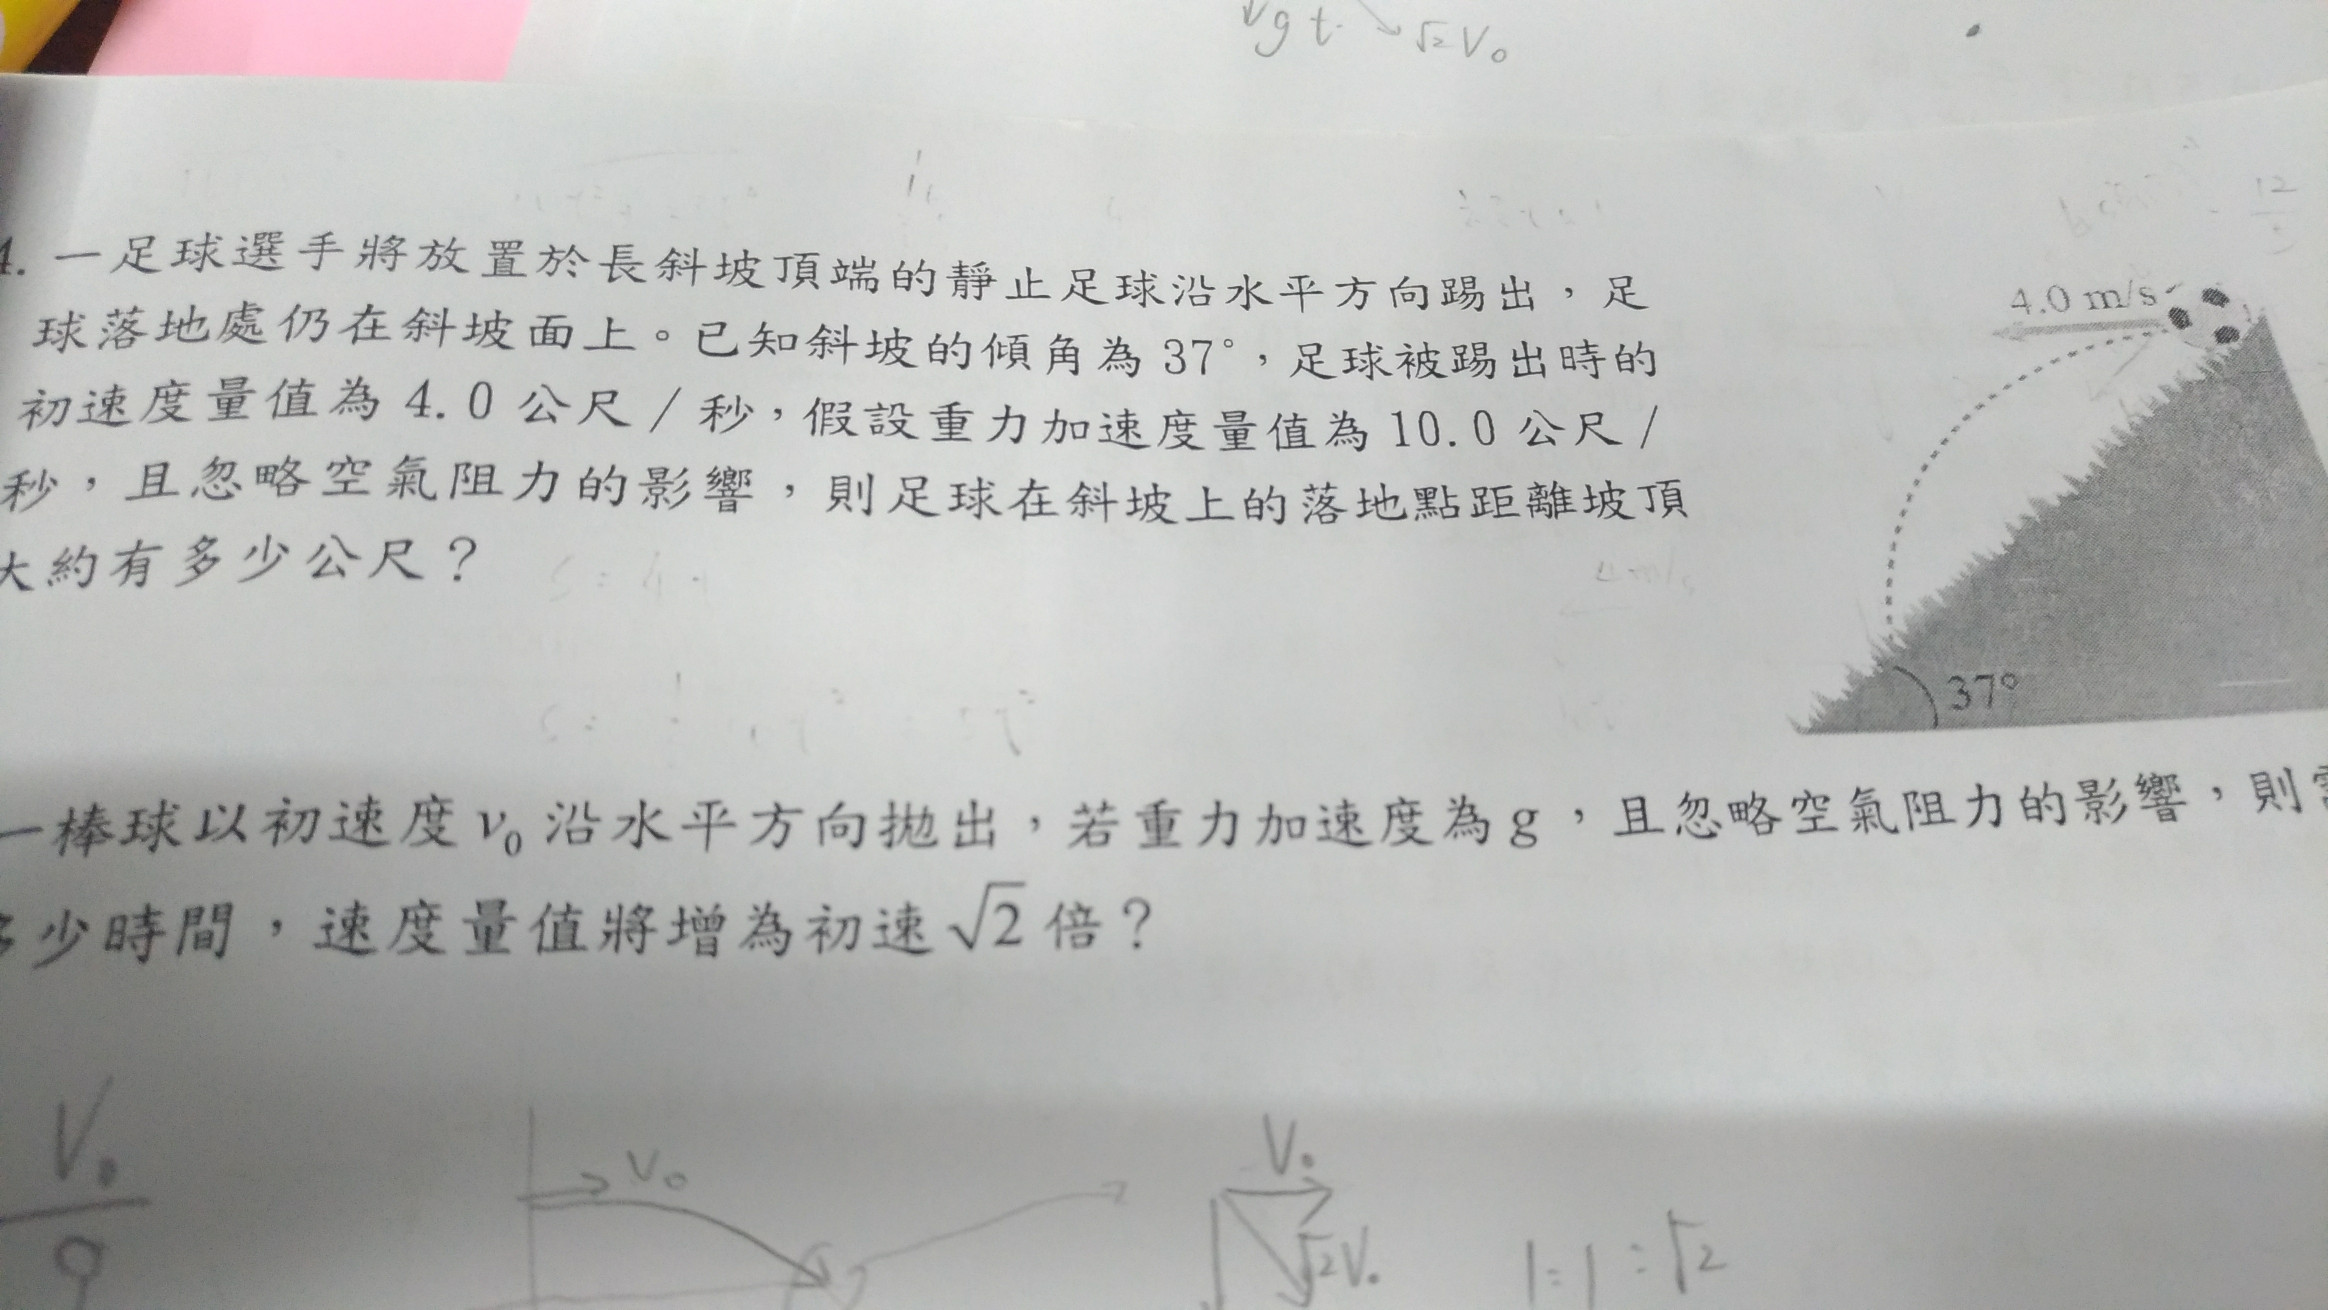 gt √2V₀
4. 一足球選手將放置於長斜坡頂端的靜止足球沿水平方向踢出，足
球落地處仍在斜坡面上。已知斜坡的傾角為 37°，足球被踢出時的
初速度量值為 4.0 公尺／秒，假設重力加速度量值為 10.0 公尺／
秒，且忽略空氣阻力的影響，則足球在斜坡上的落地點距離坡頂
大約有多少公尺？
4.0 m/s
37°
一棒球以初速度 v₀ 沿水平方向拋出，若重力加速度為 g，且忽略空氣阻力的影響，則
多少時間，速度量值將增為初速 √2 倍？
V₀
g
V₀
V₀
√2V₀
1:1:√2